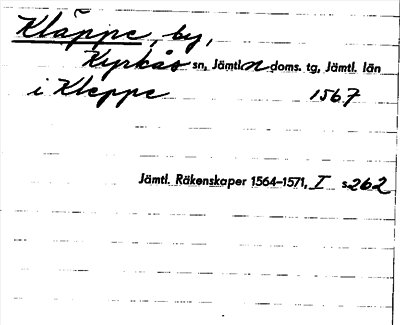 Kläppe, by,
Kyrkås sn, Jämtl. n doms. tg, Jämtl. län
i Kleppe 1567
Jämtl. Räkenskaper 1564–1571, I s. 262